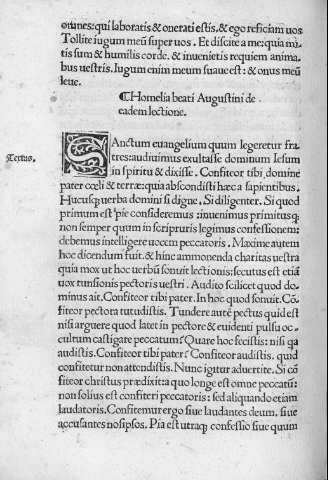 omnes: qui laboratis & onerati estis, & ego reficiam uos
Tollite iugum meū super uos. Et discite a me: quia mi
tis sum & humilis corde. & inuenietis requiem anima
bus uestris. Iugum enim meum suaue est: & onus meū
leue.
¶ Homelia beati Augustini de
eadem lectione.
SAnctum euangelium quum legeretur fra
Textus.
tres: audiuimus exultasse dominum Iesum
in spiritu & dixisse. Confiteor tibi, domine
pater cœli & terræ: quia abscondisti hæc a sapientibus.
Hucusq; uerba domini si digne. Si diligenter. Si quod
primum est pie consideremus: inuenimus primitus q
non semper quum in scripruris legimus confessionem:
debemus intelligere uocem peccatoris. Maxime autem
hoc dicendum fuit. & hinc ammonenda charitas uestra
quia mox ut hoc uerbū sonuit lectionis: secutus est etiā
uox tunsionis pectoris uestri. Audito scilicet quod do
minus ait. Confiteor tibi pater. In hoc quod sonuit. Cō
fiteor pectora tutudistis. Tundere autē pectus quid est
nisi arguere quod latet in pectore & euidenti pulsu oc
cultum castigare peccatum? Quare hoc fecistis: nisi qa
audistis. Confiteor tibi pater? Confiteor audistis. quid
confitetur non attendistis. Nunc igitur aduertite. Si cō
fiteor christus prædixit: a quo longe est omne peccatū:
non solius est confiteri peccatoris: sed aliquando etiam
laudatoris. Confitemur ergo siue laudantes deum, siue
accusantes nosipsos. Pia est utraq; confessio siue quum